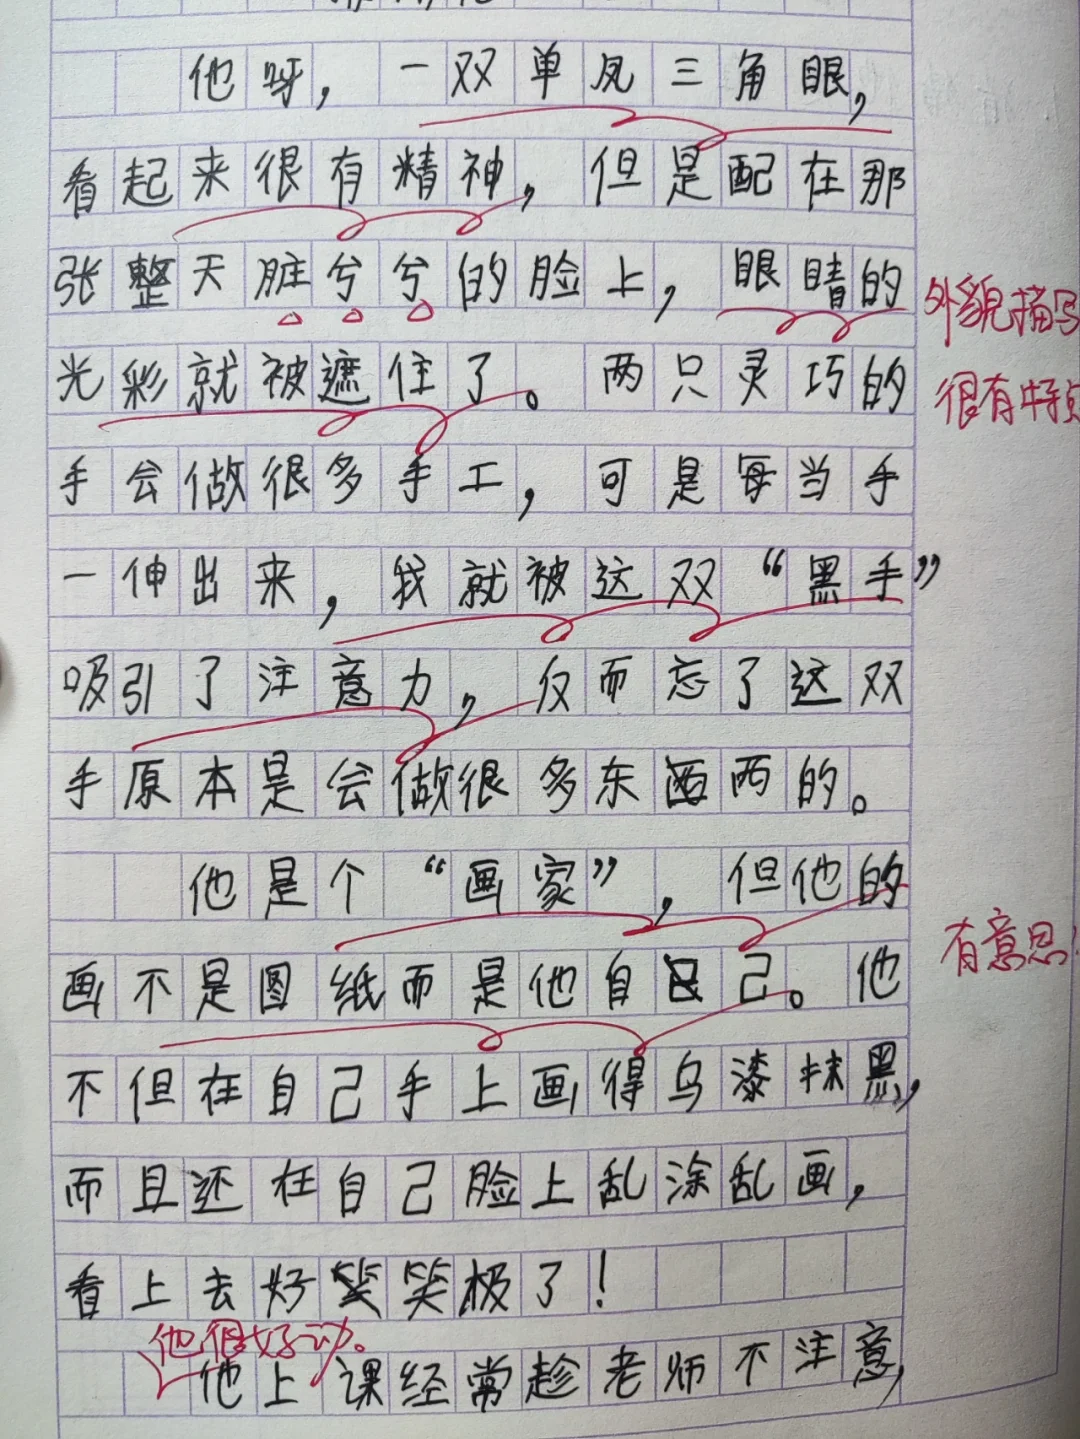 他呀，一双单凤三角眼，
看起来很有精神，但是配在那
张整天脏兮兮的脸上，眼睛的
外貌描写
光彩就被遮住了。两只灵巧的
很有特点
手会做很多手工，可是每当手
一伸出来，我就被这双“黑手”
吸引了注意力，仅而忘了这双
手原本是会做很多东西的。
他是个“画家”，但他的
有意思！
画不是图纸而是他自己。他
不但在自己手上画得乌漆抹黑，
而且还在自己脸上乱涂乱画，
看上去好笑极了！
他很好动。
他上课经常趁老师不注意，